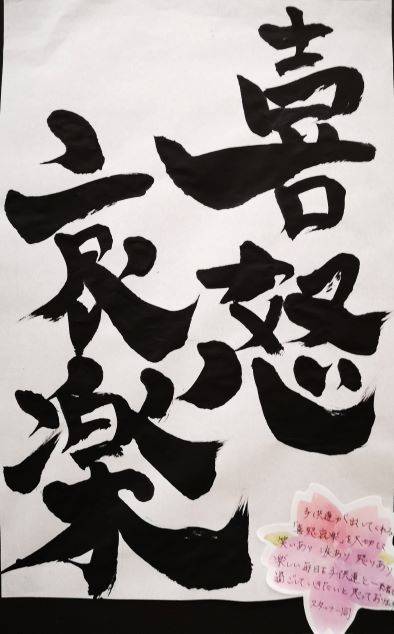 喜怒
哀楽
子供達が出してくれる
「喜怒哀楽」を大切に
笑いあり 涙あり 怒りあり
楽しい毎日を子供達と一緒に
過ごしていきたいと思ってお
スタッフ一同